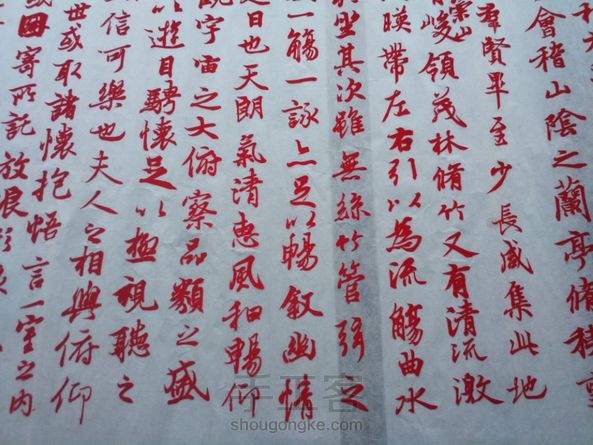 會稽山陰之蘭亭脩禊事
群賢畢至少長咸集此地
崇山
峻領茂林脩竹又有清流激
暎帶左右引以為流觴曲水
列坐其次雖無絲竹管弦之
一觴一詠亦足以暢叙幽情
是日也天朗氣清惠風和暢仰
觀宇宙之大俯察品類之盛
以遊目騁懷足以極視聽之
信可樂也夫人之相與俯仰
世或取諸懷抱悟言一室之內
或因寄所託放浪形
手工客
shougongke.com